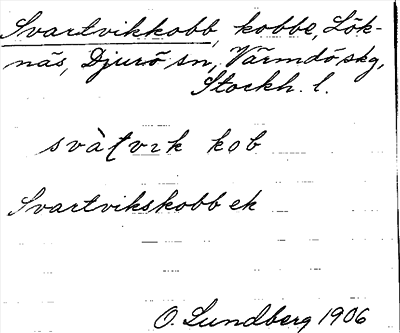 Svartvikkobb, kobbe, Lök-
näs, Djurö sn, Värmdö skg,
Stockh. l.
svàt̨vɪk kob
Svartvikskobb ek
O. Lundberg 1906